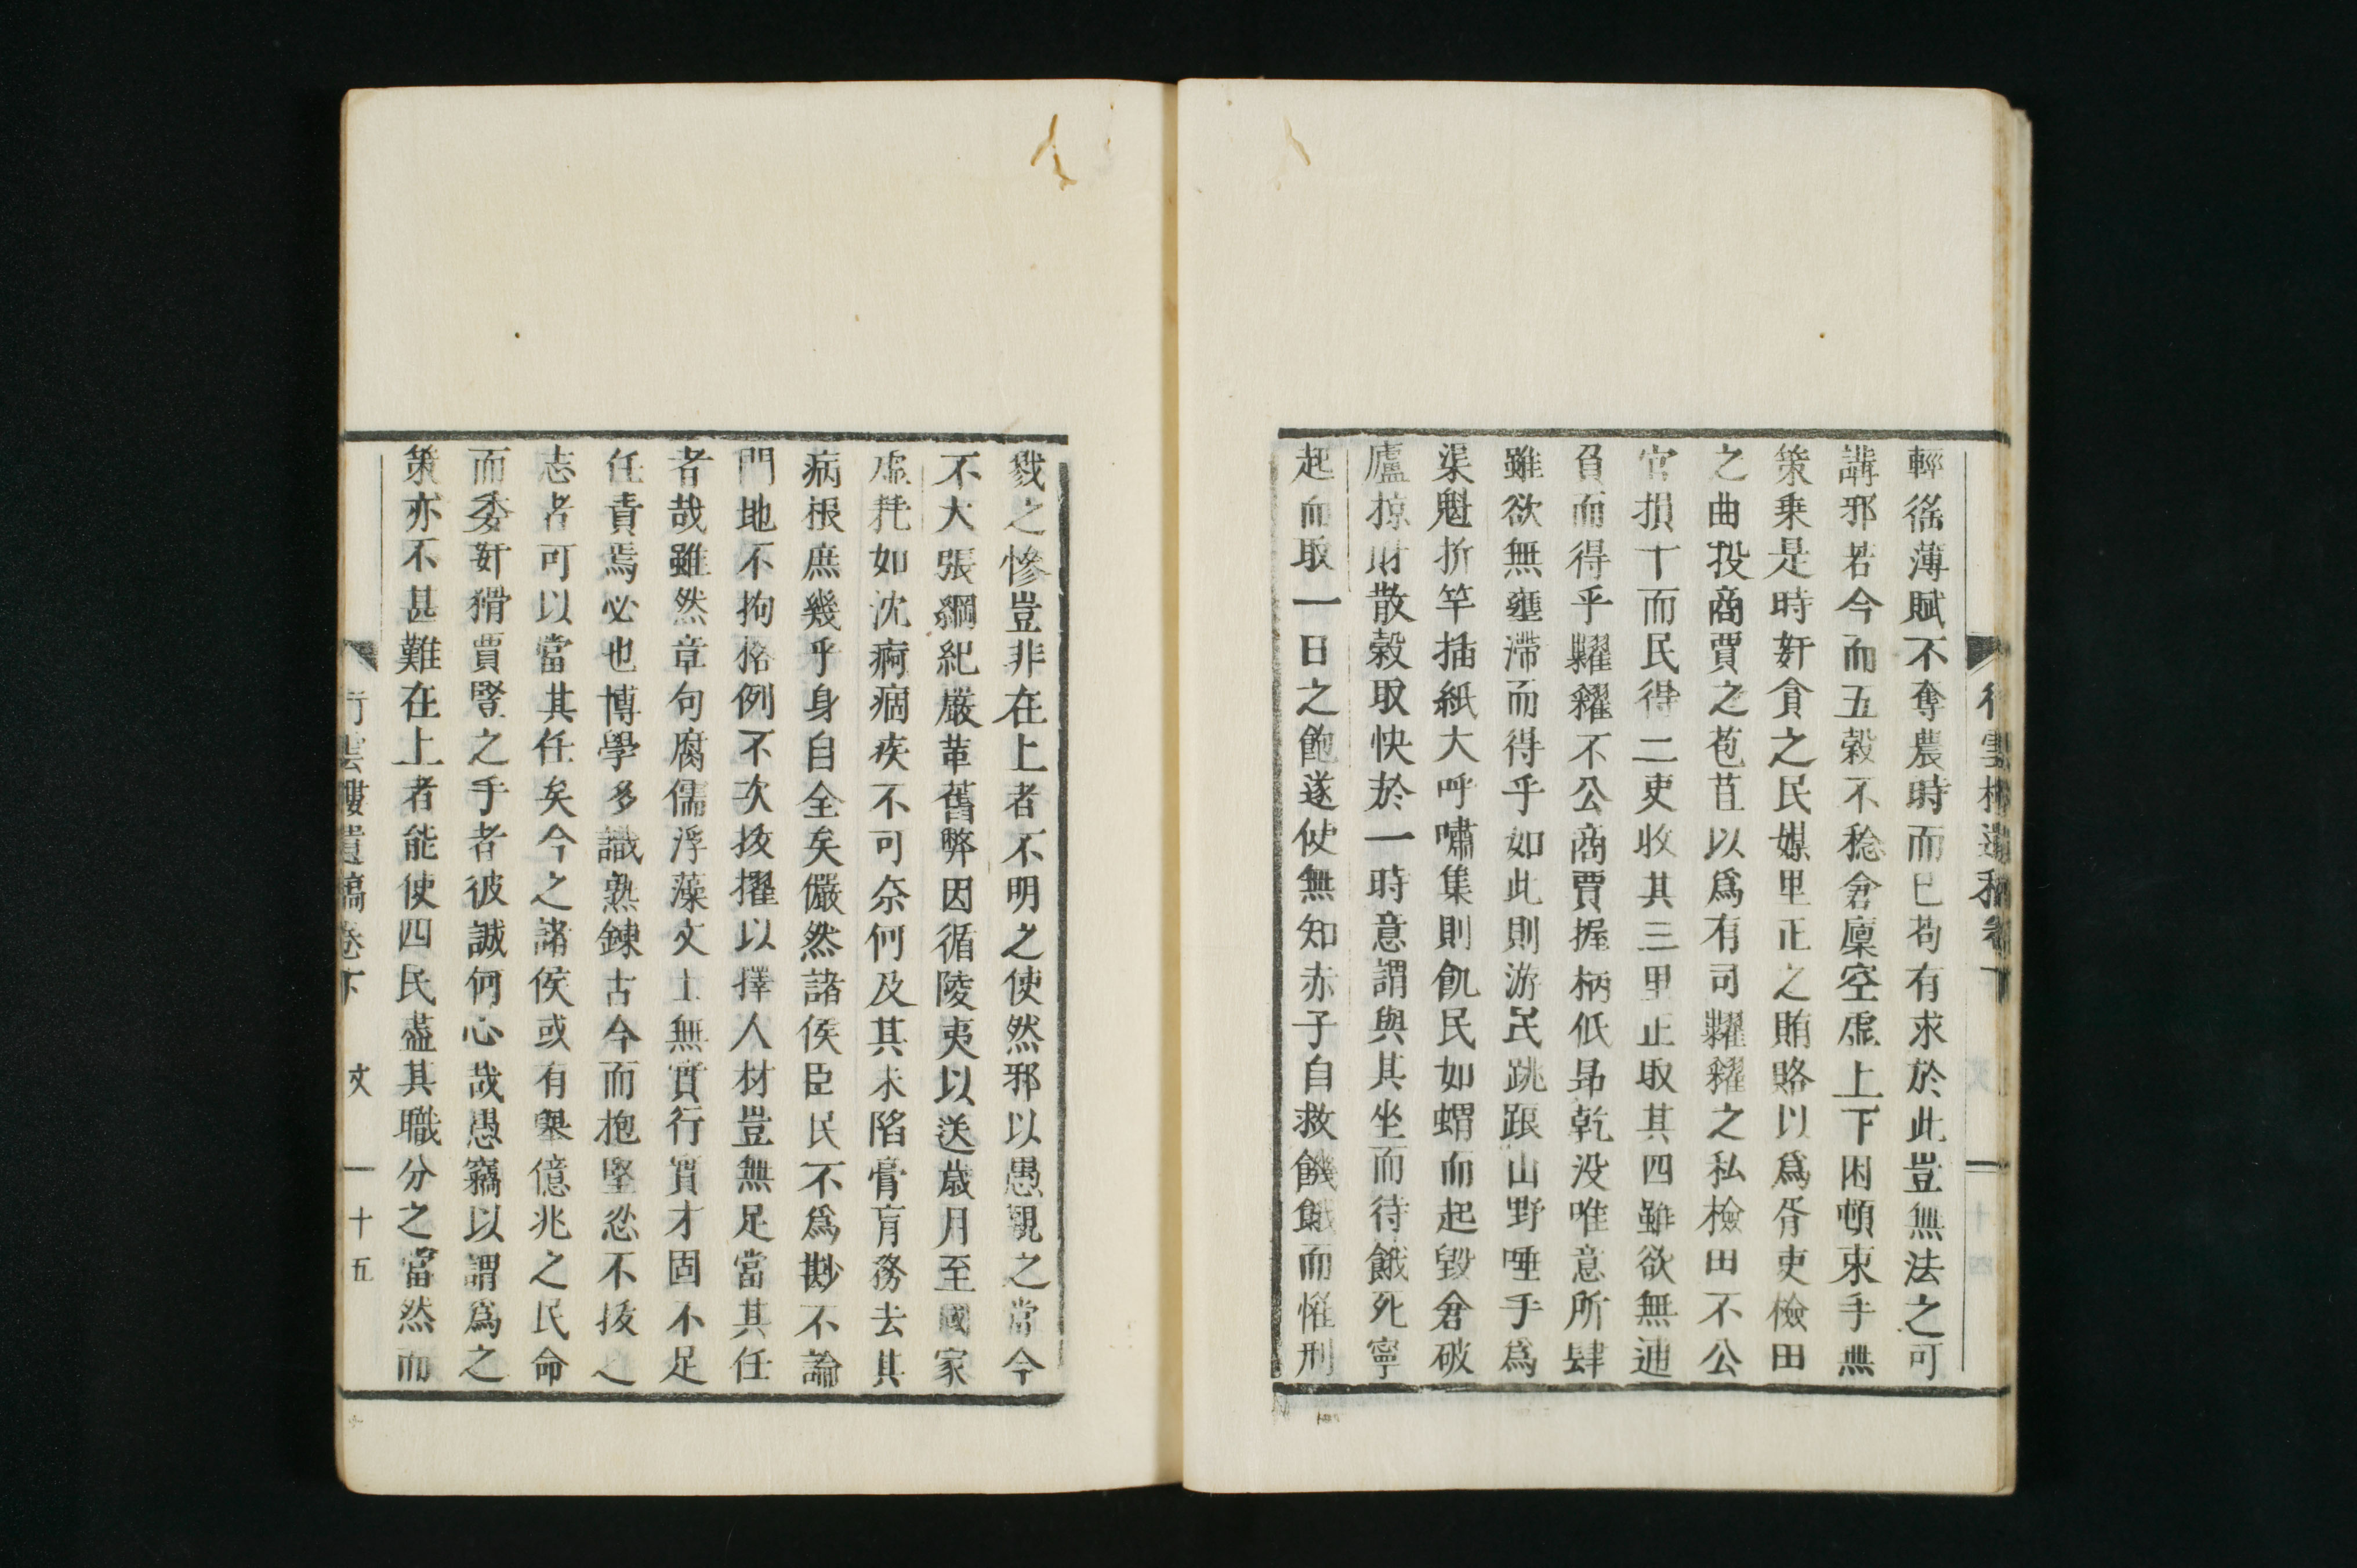 輕徭薄賦不奪農時而已苟有求於此豈無法之可
講邪若今而五穀不稔倉廩空虛上下困頓束手無
策乗是時姧貪之民媒里正之賄賂以爲胥吏檢田
之曲投商賈之苞苴以爲有司糶糴之私檢田不公
官損十而民得二吏收其三里正取其四雖欲無逋
負而得乎糶糴不公商賈握柄低昻乾没唯意所肆
雖欲無壅滯而得乎如此則游民跳踉山野唾手爲
渠魁折竿插紙大呼嘯集則飢民如蝟而起毀倉破
廬掠財散穀取快於一時意謂與其坐而待餓死寧
起而取一日之飽遂使無知赤子自救饑餓而惟刑
戮之慘豈非在上者不明之使然邪以愚觀之當今
不大張綱紀嚴革舊弊因循陵夷以送歳月至國家
虛耗如沈痾痼疾不可奈何及其未陷膏肓務去其
病根庶幾乎身自全矣儼然諸侯臣民不爲尠不論
門地不拘格例不次抜擢以擇人材豈無足當其任
者哉雖然章句腐儒浮藻文士無實行實才固不足
任責焉必也博學多識熟錬古今而抱堅忍不抜之
志者可以當其任矣今之諸侯或有擧億兆之民命
而委姧猾賈豎之手者彼誠何心哉愚竊以謂爲之
策亦不甚難在上者能使四民盡其職分之當然而
行雲樓遺稿卷下　文　十五